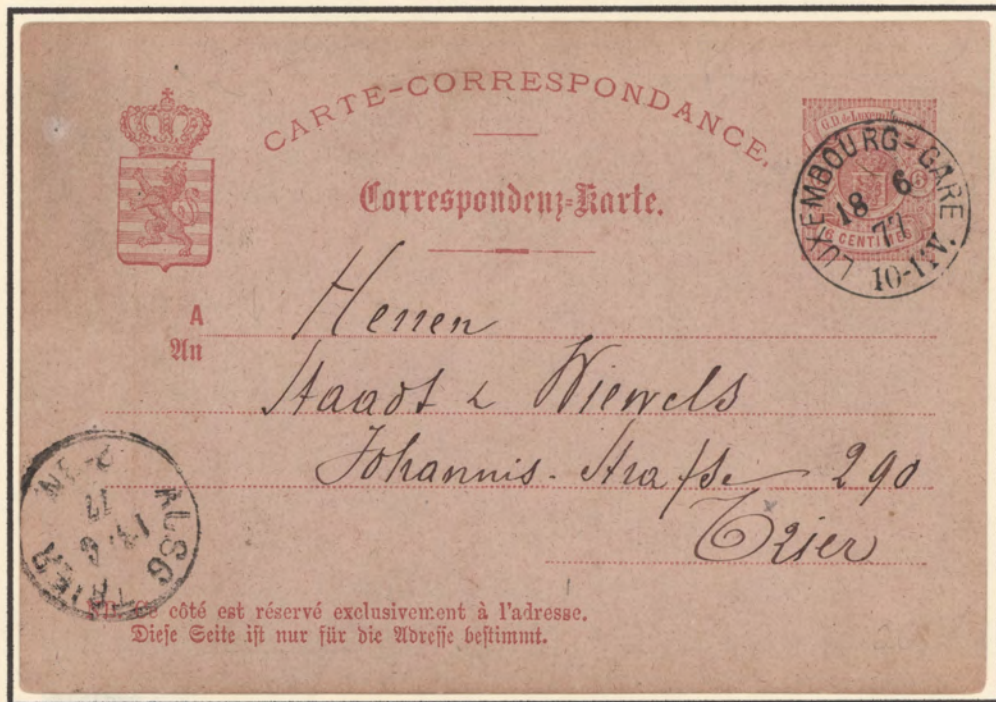 CARTE-CORRESPONDANCE.
Correspondenz-Karte.
G.D. de Luxembourg
6
6 CENTIMES
LUXEMBOURG-GARE
18 6
77
10-11V.
A
An
Herren
Staadt & Wiewels
Johannis-Straße 290
Trier
TRIER
77
NB. Ce côté est réservé exclusivement à l'adresse.
Diese Seite ist nur für die Adresse bestimmt.